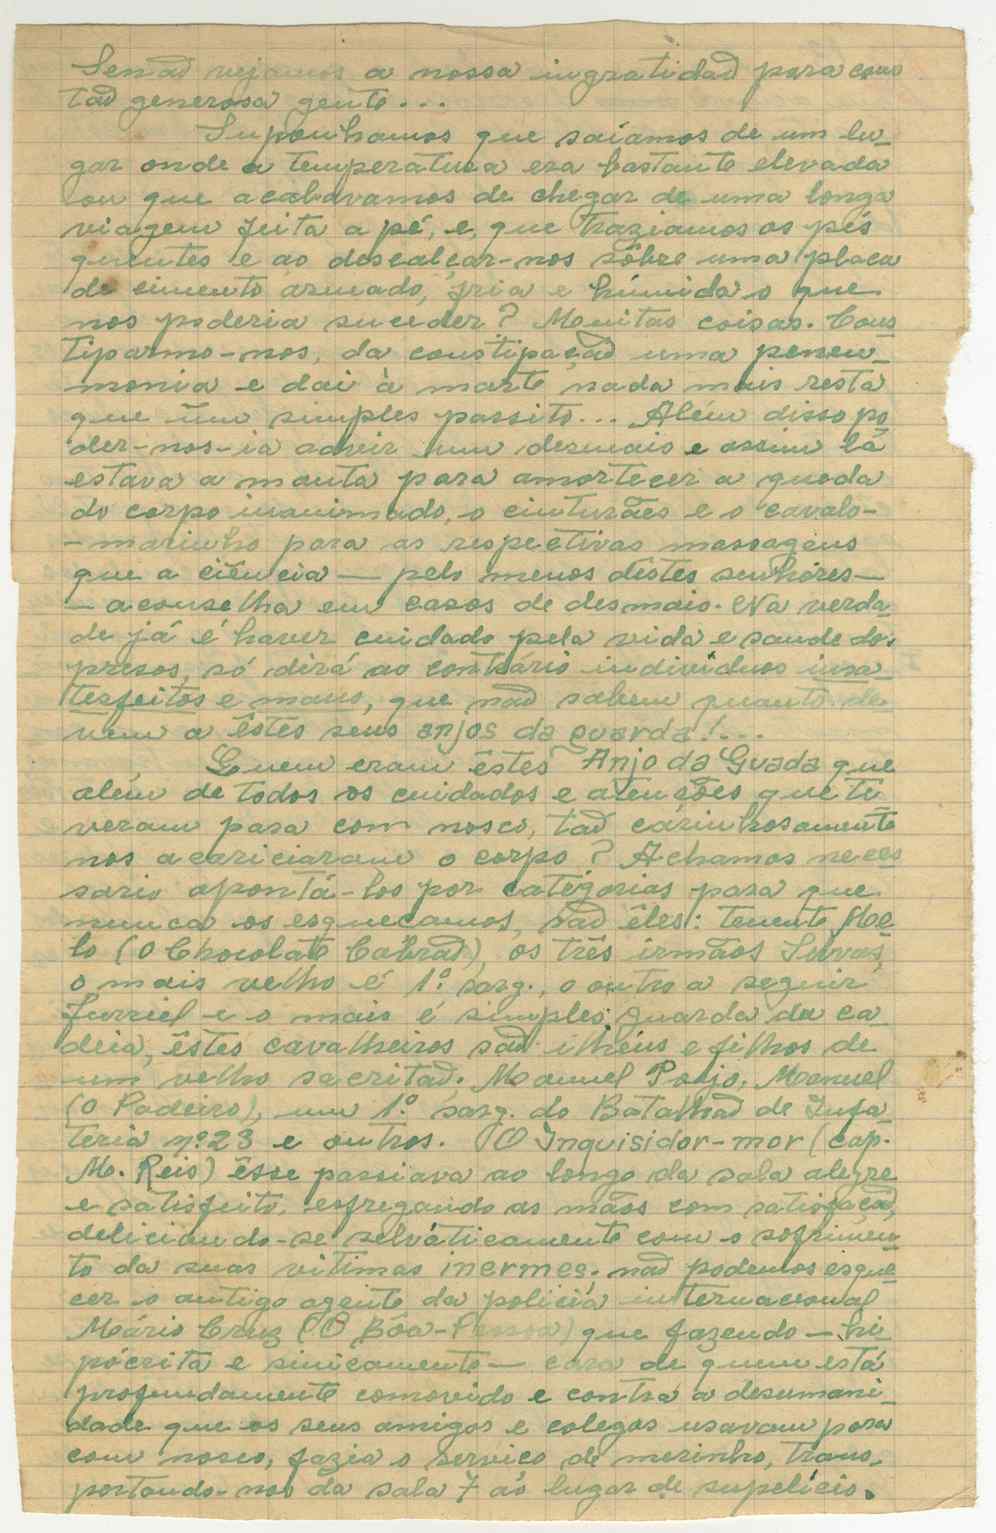 Senão vejamos a nossa ingratidão para com
tão generosa gente...
Suponhamos que saíamos de um lu-
gar onde a temperatura era bastante elevada
ou que acabavamos de chegar de uma longa
viagem feita a pé, e, que traziamos os pés
quentes e ao descalçar-nos sôbre uma placa
de cimento armado, fria e húmida o que
nos poderia suceder? Monitas coisas. Cons
tiparmo-nos, da constipação uma peneu-
monia e dai à morte nada mais resta
que um simples passito... Além disso po
der-nos-ia advir um desmaio e assim lá
estava a manta para amortecer a queda
do corpo inanimado, o cinturães e o cavalo-
-marinho para as respectivas massagens
que a ciência — pelo menos dêstes senhores —
— aconselha em casos de desmaio. Na verda
de já é haver cuidado pela vida e saude dos
presos, só dirá ao contrário indivíduos insa
tesfeitos e maus, que não sabem quanto de
vem a êstes seus anjos da guarda!...
Quem eram êstes Anjo da Guada que
além de todos os cuidados e atenções que ti
veram para com nosco, tão carinhosamente
nos acariciaram o corpo? Achamos neces
sario apontá-los por catégorias para que
nunca os esqueçamos, são êles: tenente Me
lo (O Chocolate Cabrão), os três irmãos
o mais velho é 1.º sarg., o outro a seguir
Furriel e o mais é simples guarda da ca
deia, êstes cavalheiros são ilhéus e filhos de
um velho sacritão. Manuel Manuel
(O Padeiro), um 1.º sarg. do Batalhão de Infa
teria nº 23 e outros. O Inquisidor-mor (cap.
M. Reis) êsse passiava ao longo da sala alegre
e satisfeito, esfregando as mãos com satisfação,
deliciando-se selváticamente com o sofrimen
to da suas vitimas inermes. não podemos esque
cer o antigo agente da policía internacional
Mário Cruz (O Bôa-Pessoa) que fazendo — hi
pócrita e sinicamente — cara de quem está
profundamente comovido e contra a desumani
dade que os seus amigos e colegas usavam para
com nosco, fazia o serviço de merinho, trans-
portando-nos da sala 7 ao lugar de supelício.